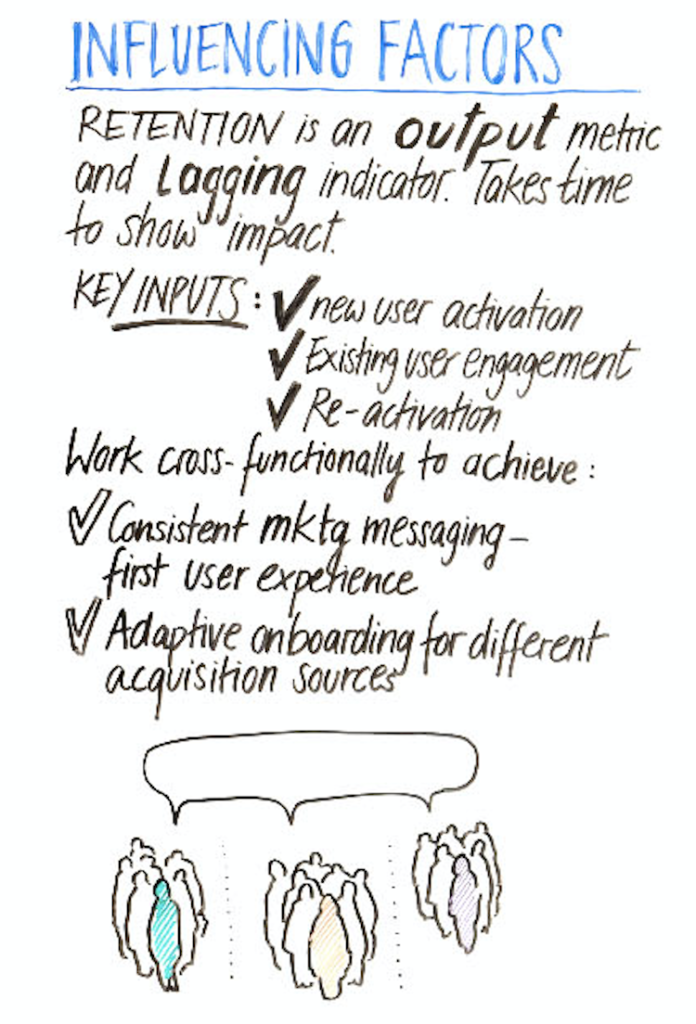 INFLUENCING FACTORS
RETENTION is an output metric
and Lagging indicator. Takes time
to show impact.
KEY INPUTS: ✔ new user activation
✔ Existing user engagement
✔ Re-activation
Work cross-functionally to achieve:
✓ Consistent mktg messaging –
first user experience
✓ Adaptive onboarding for different
acquisition sources